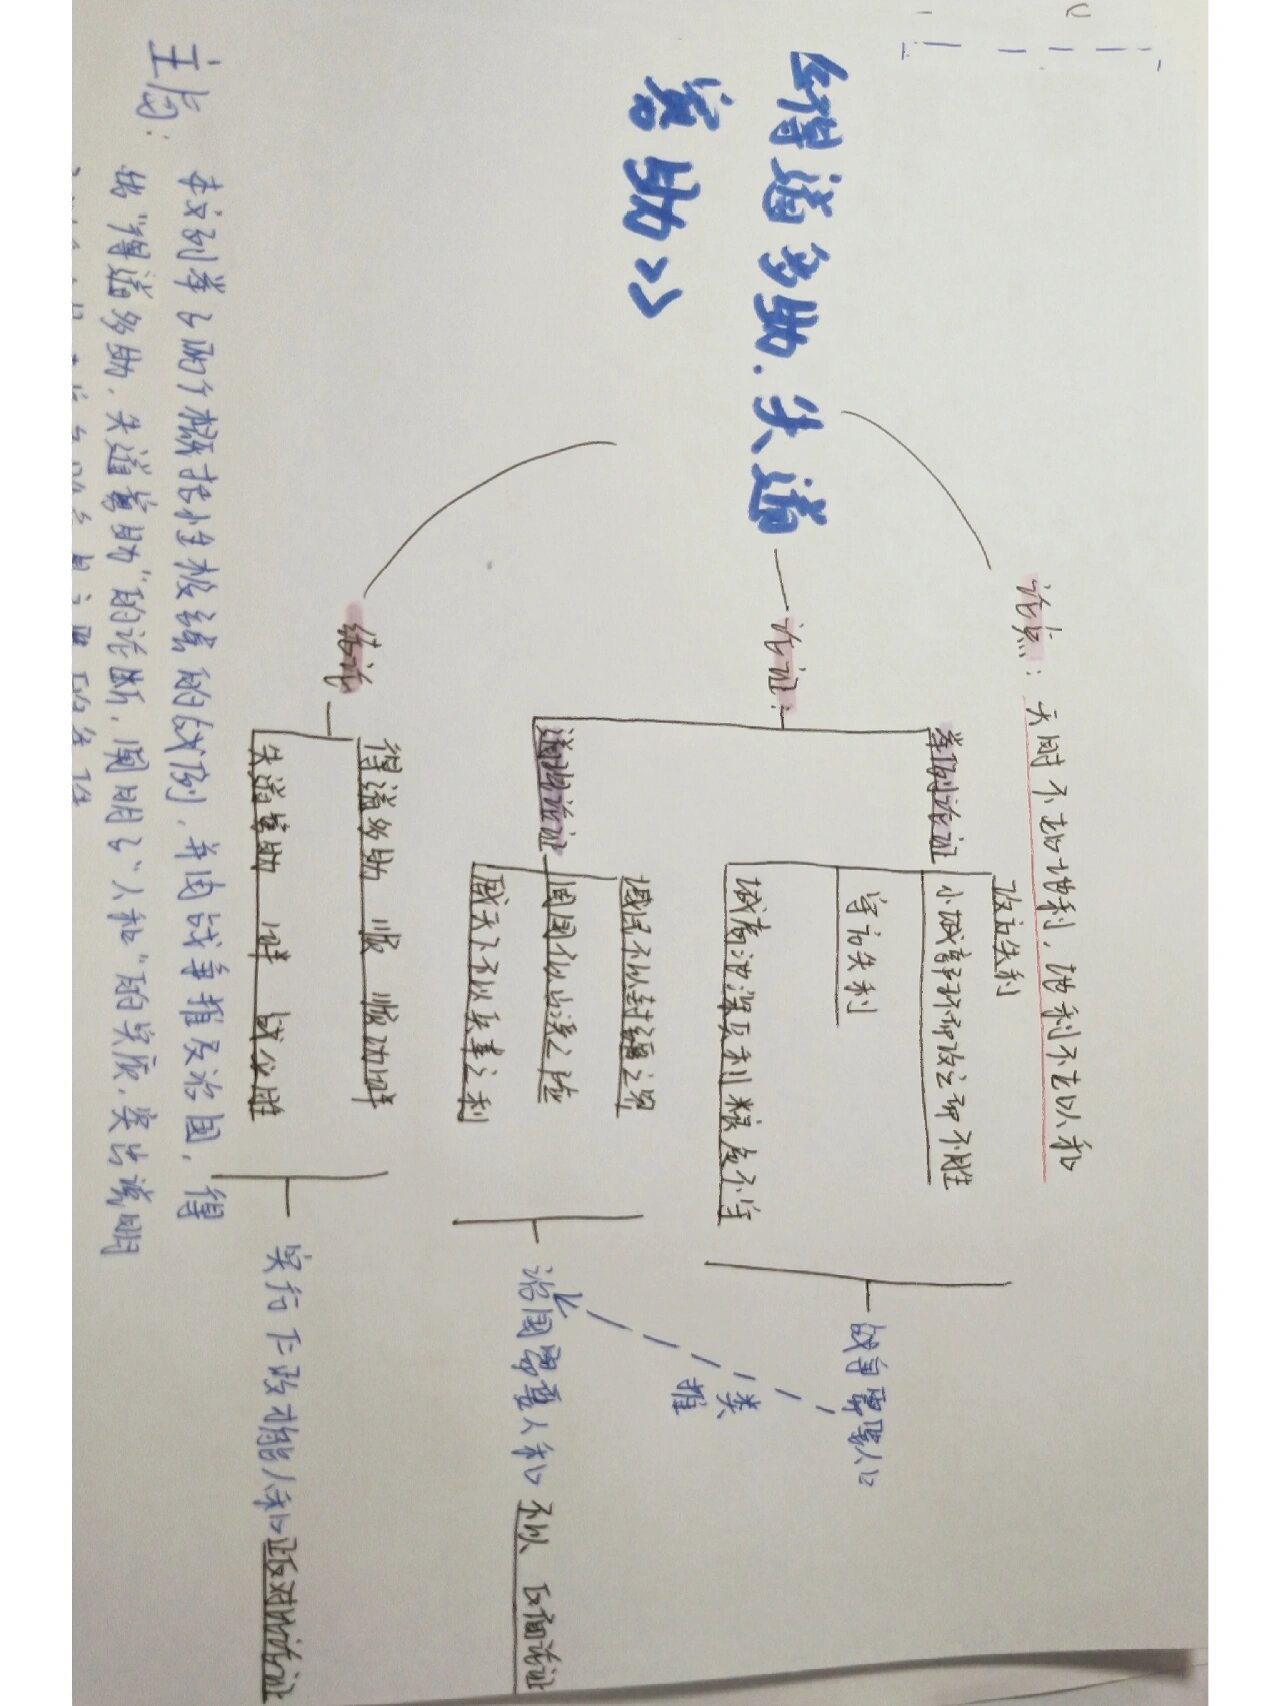 《得道多助.失道
寡助》
论点：天时不如地利，地利不如人和
论证：
举例论证
攻方失利
小城 环而攻之而不胜
守方失利
城高池深兵利粮多不守
战争需要人口
类
推
道理论证
域民不以封疆之界
固国不以山溪之险
威天下不以兵革之利
治国需要人和 不以 反面论证
结论
得道多助 顺
失道寡助 畔 战必胜
实行 政才能人和 正反对比论证
主旨：
本文列举了两个概括性极强的战例，并由战争推及治国，得
出“得道多助，失道寡助”的论断，阐明了“人和”的实质，突出说明